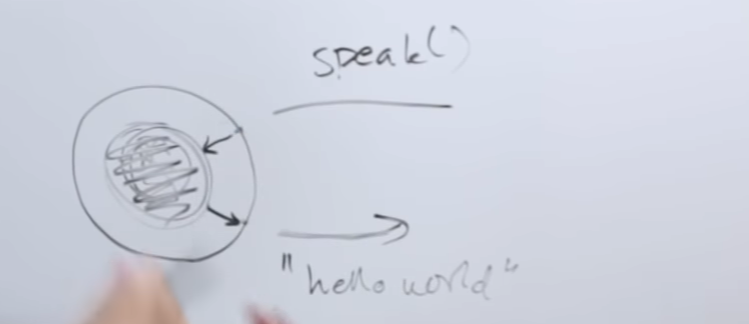 speak()
"hello world"